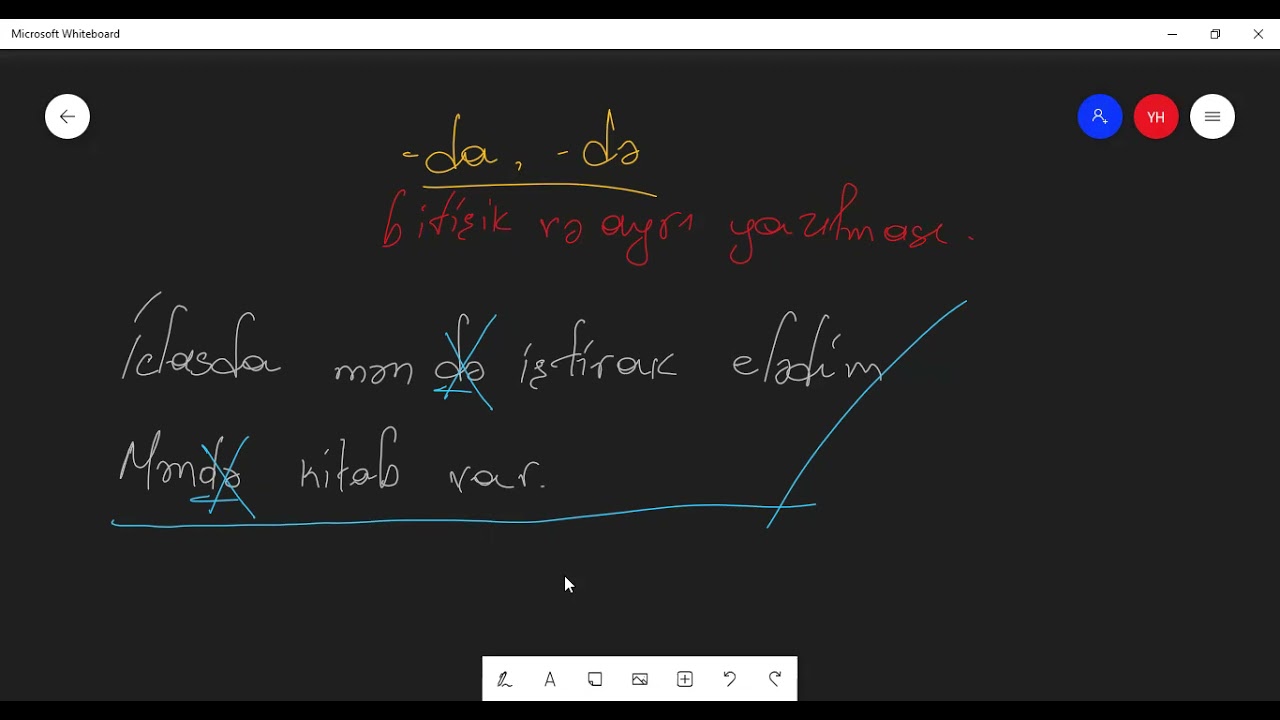 Microsoft Whiteboard
YH
-da, -də
bitişik və ayrı yazılması.
İclasda mən də iştirak elədim
Məndə kitab var.
A